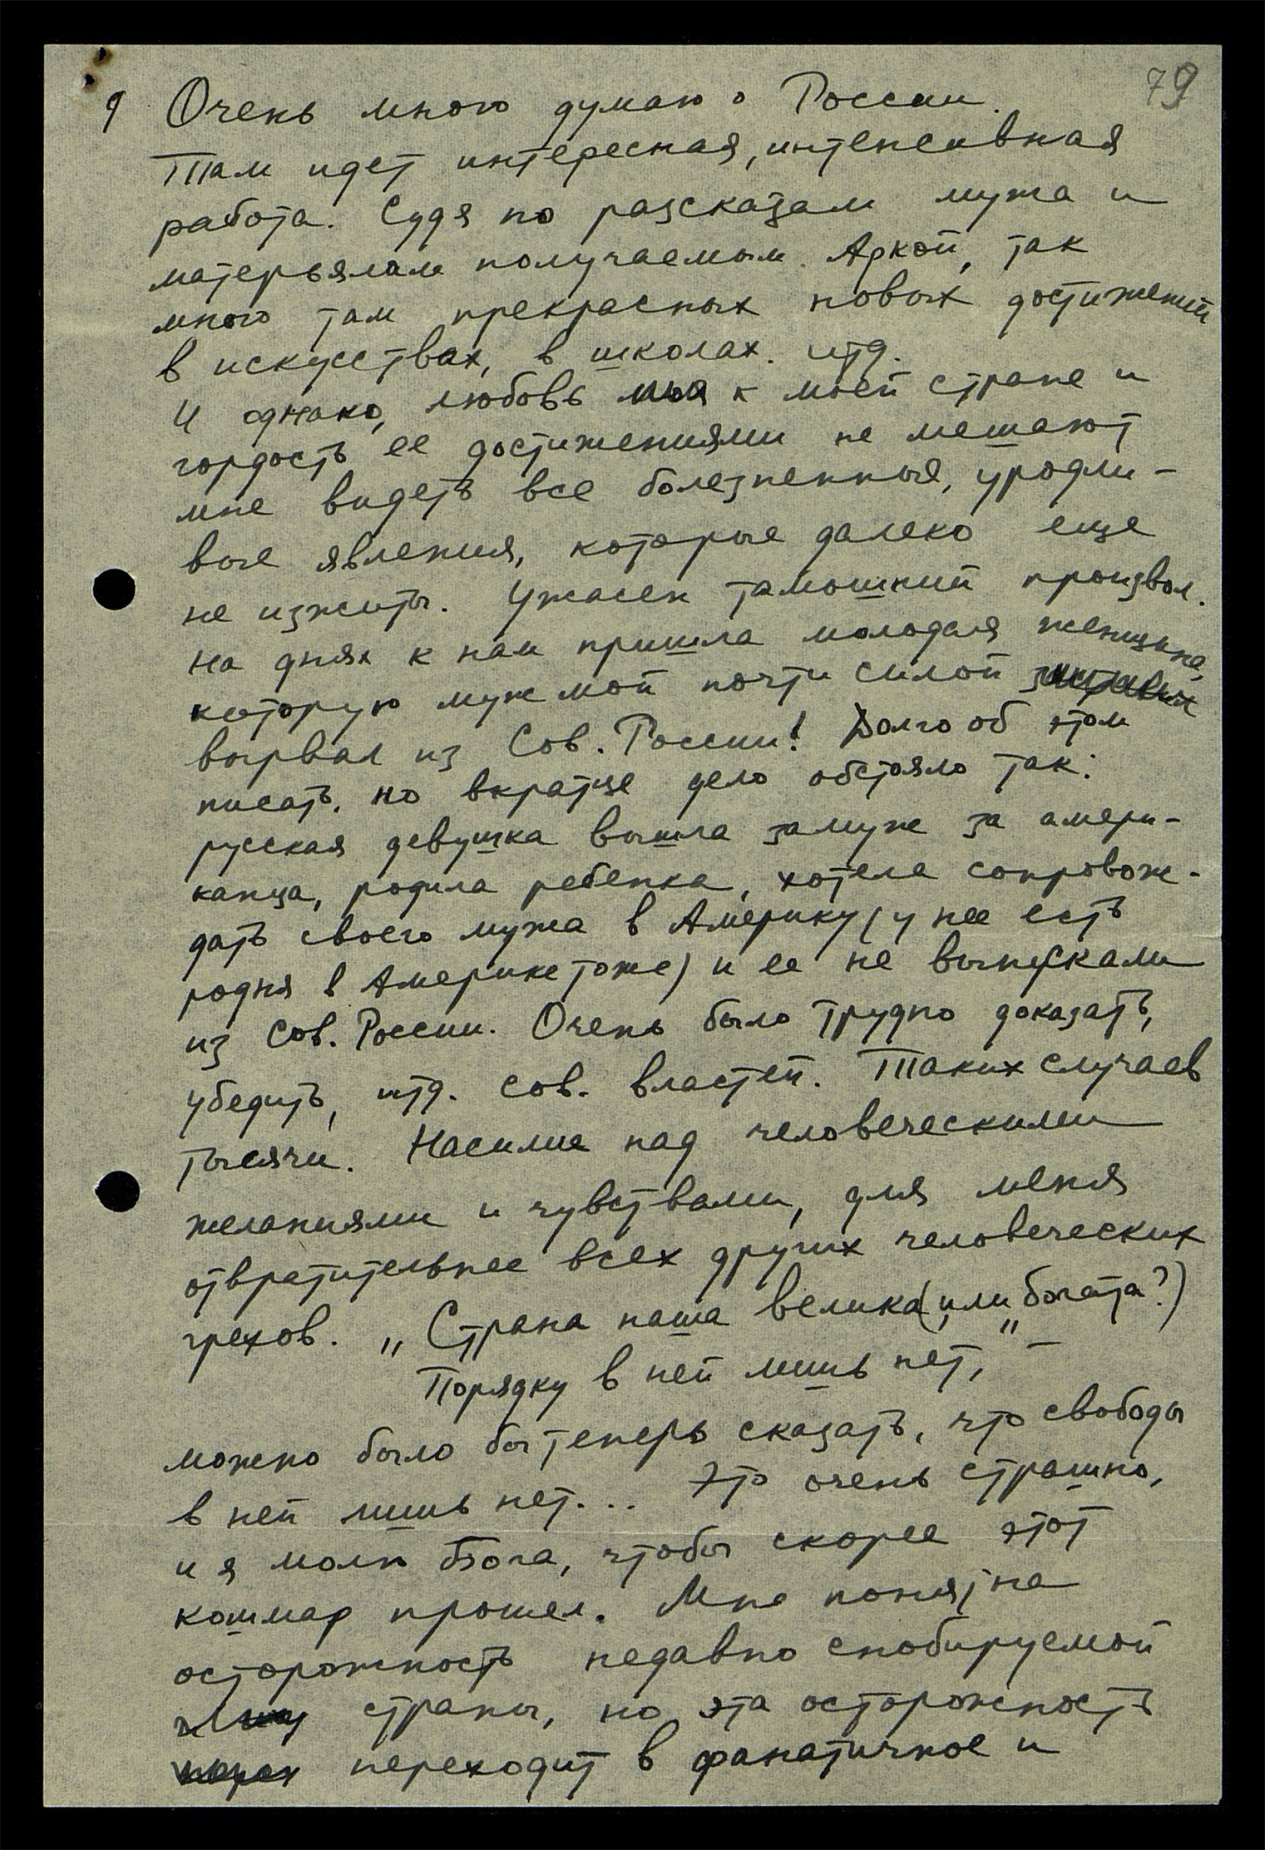 79
9 Очень много думаю о России.
Там идет интересная, интенсивная
работа. Судя по разсказам мужа и
матерьялам получаемым Аркой, так
много там прекрасных новых достижений
в искусствах, в школах. итд.
И однако, любовь моя к моей стране и
гордость ее достижениями не мешают
мне видеть все болезненныя, уродли-
вые явления, которые далеко еще
не изжиты. Ужасен тамошний произвол.
На днях к нам пришла молодая женщина,
которую муж мой почти силой
вырвал из Сов. России! Долго об этом
писать, но вкратце дело обстояло так:
русская девушка вышла замуж за амери-
канца, родила ребенка, хотела сопровож-
дать своего мужа в Америку (у нее есть
родня в Америке тоже) и ее не выпускали
из Сов. России. Очень было трудно доказать,
убедить, итд. сов. властей. Таких случаев
тысячи. Насилие над человеческими
желаниями и чувствами, для меня
отвратительнее всех других человеческих
грехов. „Страна наша велика (или „богата?)
Порядку в ней лишь нет," —
можно было бы теперь сказать, что свободы
в ней лишь нет... Это очень страшно,
и я молю Бога, чтобы скорее этот
кошмар прошел. Мне понятна
осторожность недавно
страны, но эта осторожность
переходит в фанатичное и